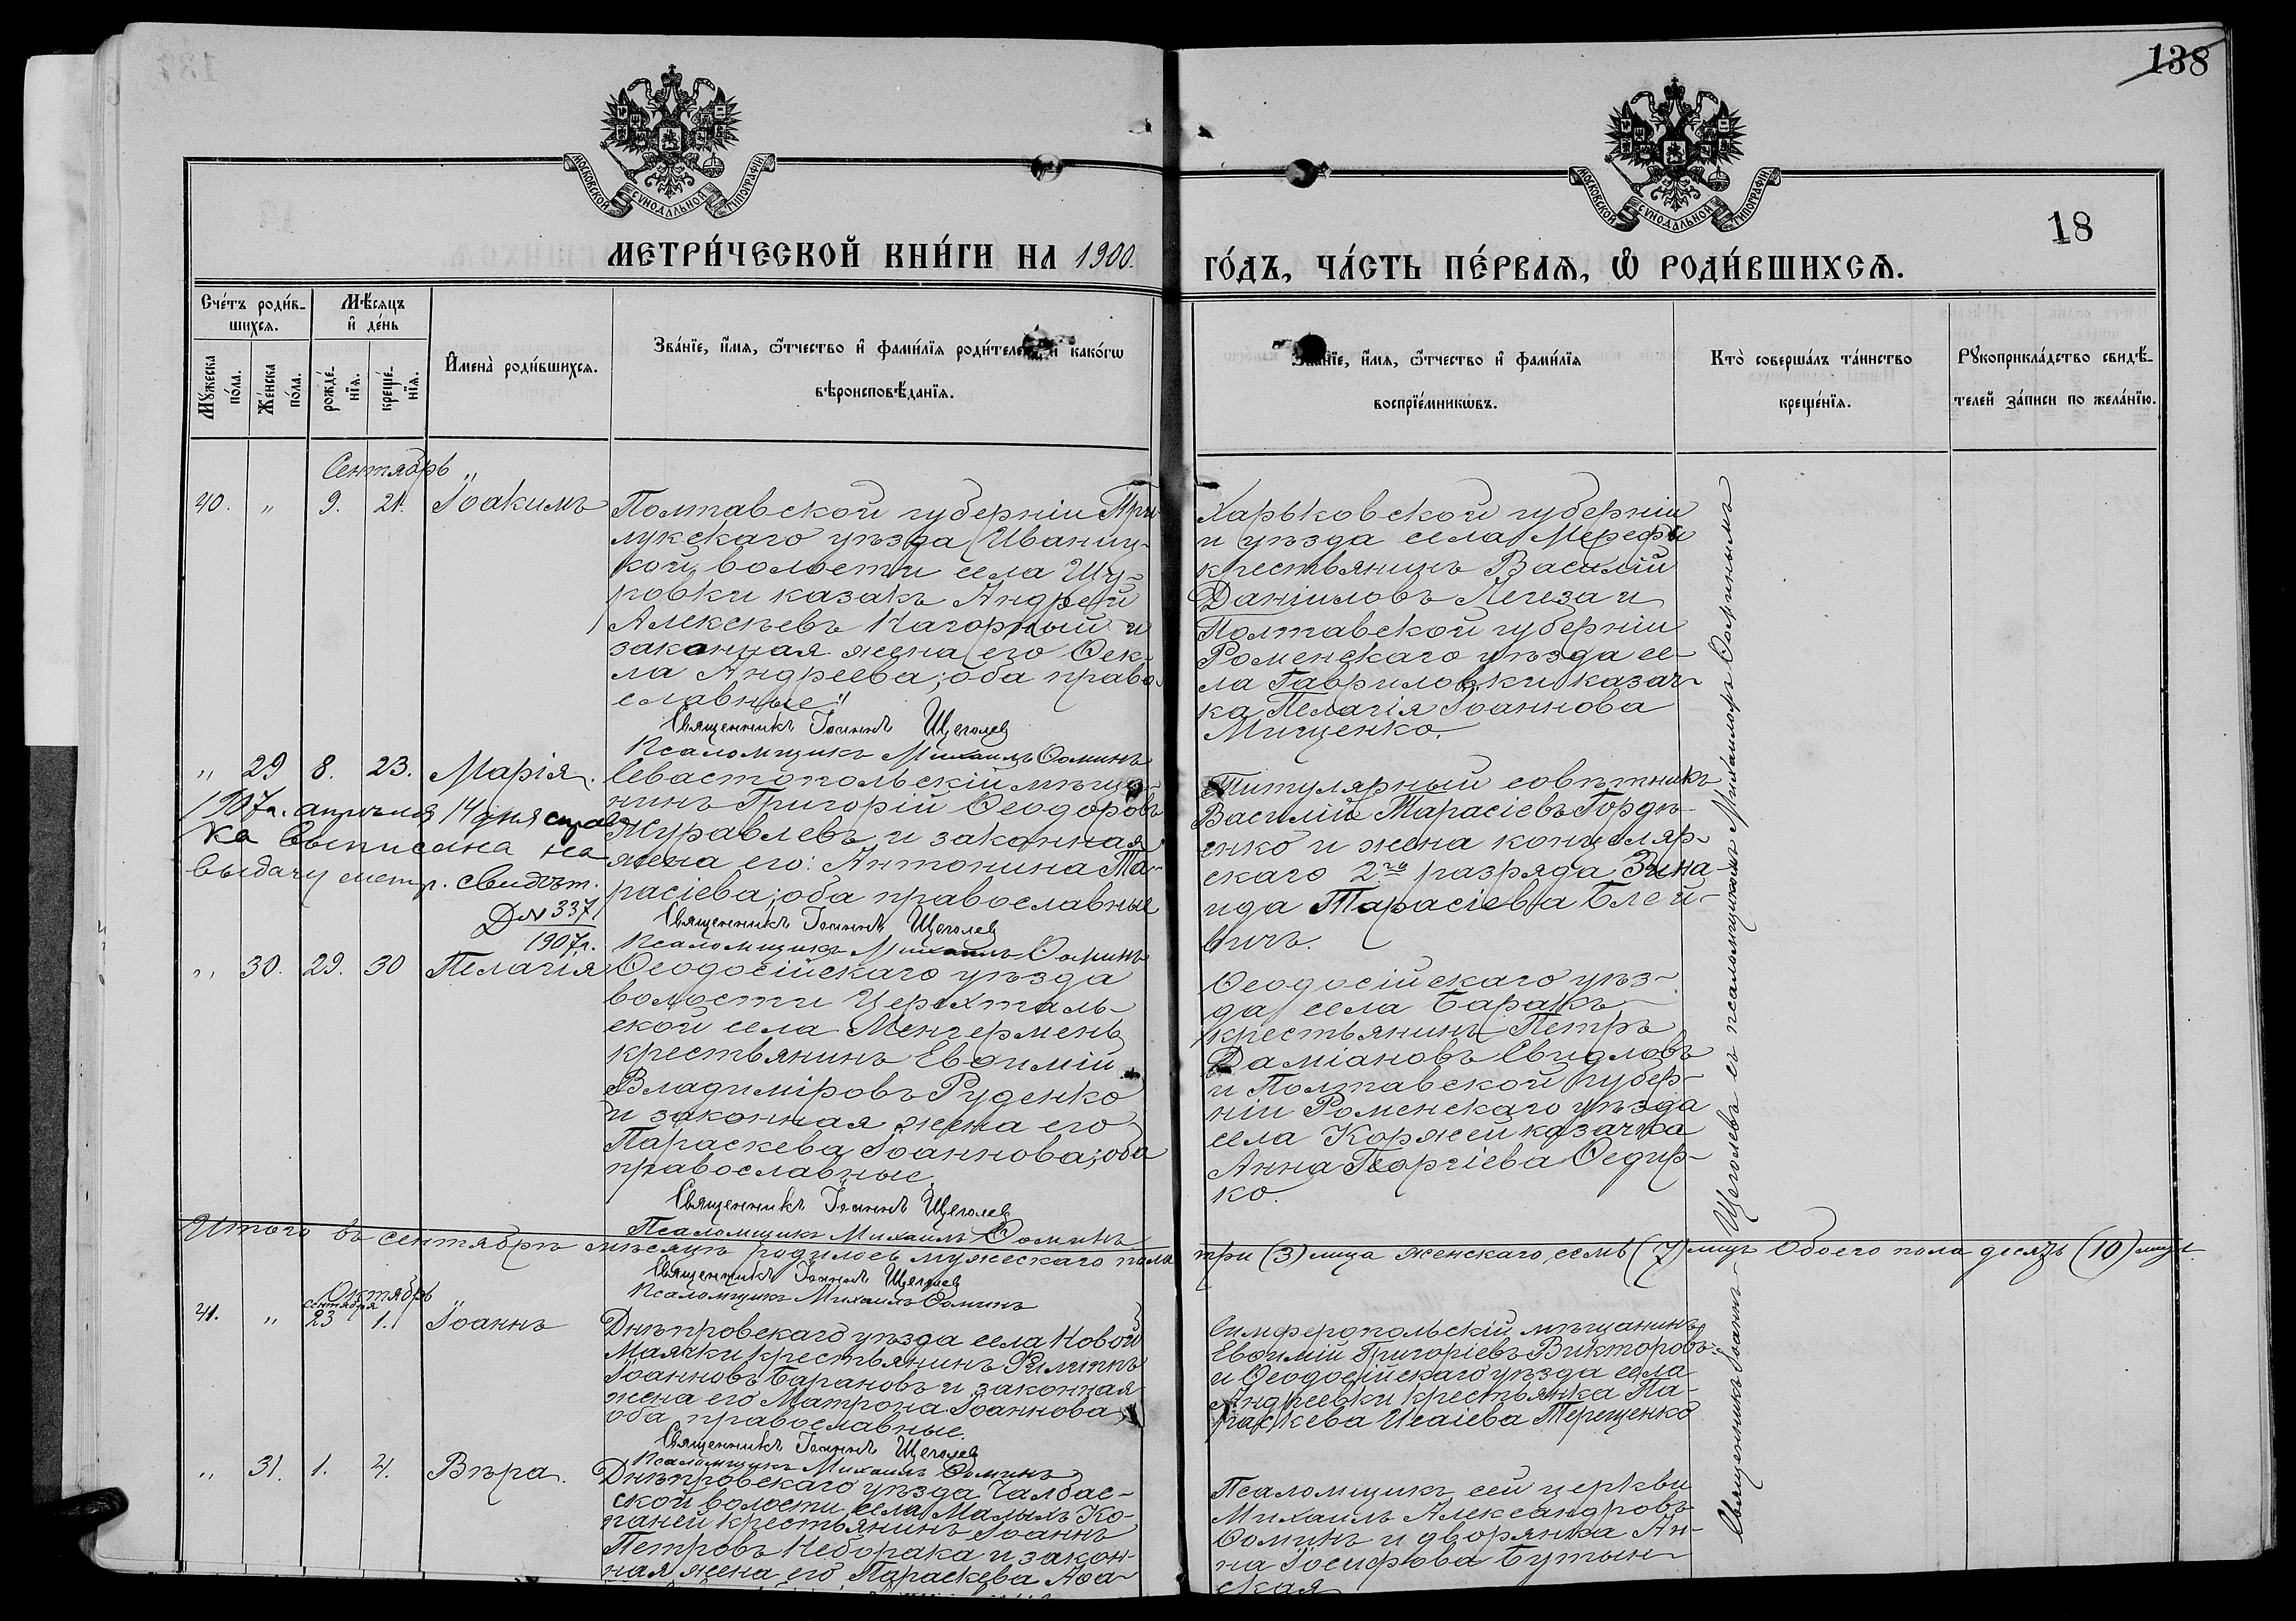 138
18
МОСКОВСКОЙ СѴНОДАЛЬНОЙ ТИПОГРАФІИ
МОСКОВСКОЙ СѴНОДАЛЬНОЙ ТИПОГРАФІИ
МЕТРИ́ЧЕСКОЙ КНИ́ГИ НА 1900.
ГО́ДЪ, ЧА́СТЬ ПЕ́РВАѦ, Ѽ РОДИ́ВШИХСѦ.
Сче́тъ роди́в-
шихсѧ.
Мꙋ́жеска
по́ла.
Же́нска
по́ла.
Мѣ́сѧцъ
и҆ де́нь
рожде́-
нїѧ.
креще́-
нїѧ.
И҆мена̀ роди́вшихсѧ.
Зва́нїе, и҆́мѧ, ѻ҆́тчество и҆ фами́лїѧ роди́телей, и҆ како́гѡ
вѣроисповѣ́данїѧ.
Зва́нїе, и҆́мѧ, ѻ҆́тчество и҆ фами́лїѧ
воспрїе́мникѡвъ.
Кто̀ соверша́лъ та́инство
креще́нїѧ.
Рꙋкоприкла́дство свидѣ́-
телей за́писи по жела́нїю.
Сентябрь
40. " 9. 21. Іоакимъ
Полтавской губерніи При-
лукскаго уѣзда Иваниц-
кой волости села Шу-
ровки казакъ Андрей
Алексѣевъ Нагорный и
законная жена его Ѳек-
ла Андреева; оба право-
славные"
Священникъ Іоаннъ Щеголев
Псаломщикъ Михаилъ Ѳоминъ
Харьковской губерніи
и уѣзда села Мерефы
крестьянинъ Василій
Даниловъ Легеза и
Полтавской губерніи
Роменскаго уѣзда се-
ла Гавриловки казач-
ка Пелагія Іоаннова
Мищенко.
" 29 8. 23. Марія.
1907 г. апрѣля 14 дня справ
ка выписана на
выдачу метр. свидѣт.
Д № 337
1907 г.
Севастопольскій мѣща-
нинъ Григорій Ѳеодоровъ
Журавлевъ и законная
жена его: Антонина Та-
расіева; оба православные
Священникъ Іоаннъ Щеголев
Псаломщикъ Михаилъ Ѳоминъ
Титулярный совѣтникъ
Василій Тарасіевъ Гордѣ-
енко и жена канцеляр-
скаго 2го разряда Зина-
ида Тарасіева Блей-
вичъ.
" 30. 29. 30 Пелагія
Ѳеодосійскаго уѣзда
волости Цюрихталь-
ской села Менгермень
крестьянинъ Евѳимій
Владиміровъ Руденко
и законная жена его
Параскева Іоаннова; оба
православные.
Священникъ Іоаннъ Щеголев
Псаломщикъ Михаилъ Ѳоминъ
Ѳеодосійскаго уѣз-
да села Баракъ
крестьянинъ Петръ
Даміановъ Свидловъ
и Полтавской губер-
ніи Роменскаго уѣзда
села Коржей казачка
Анна Георгіева Ѳедир-
ко.
Итого въ сентябрѣ мѣсяцѣ родилось мужескаго пола три (3) лица женскаго семь (7) лицъ Обоего пола десять (10) лицъ
Священникъ Іоаннъ Щеголев
Псаломщикъ Михаилъ Ѳоминъ
Октябрь
сентября
41. " 23 1. Іоаннъ
Днѣпровскаго уѣзда села Новой
Маячки крестьянинъ Филиппъ
Іоанновъ Барановъ и законная
жена его Матрона Іоаннова
оба православные.
Священникъ Іоаннъ Щеголев
Псаломщикъ Михаилъ Ѳоминъ
Симферопольскій мѣщанинъ
Евѳимій Григоріевъ Викторовъ
и Ѳеодосійскаго уѣзда села
Андреевки крестьянка Па-
раскева Исаіева Терещенко
" 31. 1. 4. Вѣра.
Днѣпровскаго уѣзда Чалбас-
ской волости села Малыхъ Ко-
паней крестьянинъ Іоаннъ
Петровъ Неборака и закон-
ная жена его Параскева Аѳа-
Псаломщикъ сей церкви
Михаилъ Александровъ
Ѳоминъ и дворянка Ан-
на Іосифова Бутын-
ская
Священникъ Іоаннъ Щеголевъ съ псаломщикомъ Михаиломъ Ѳоминымъ